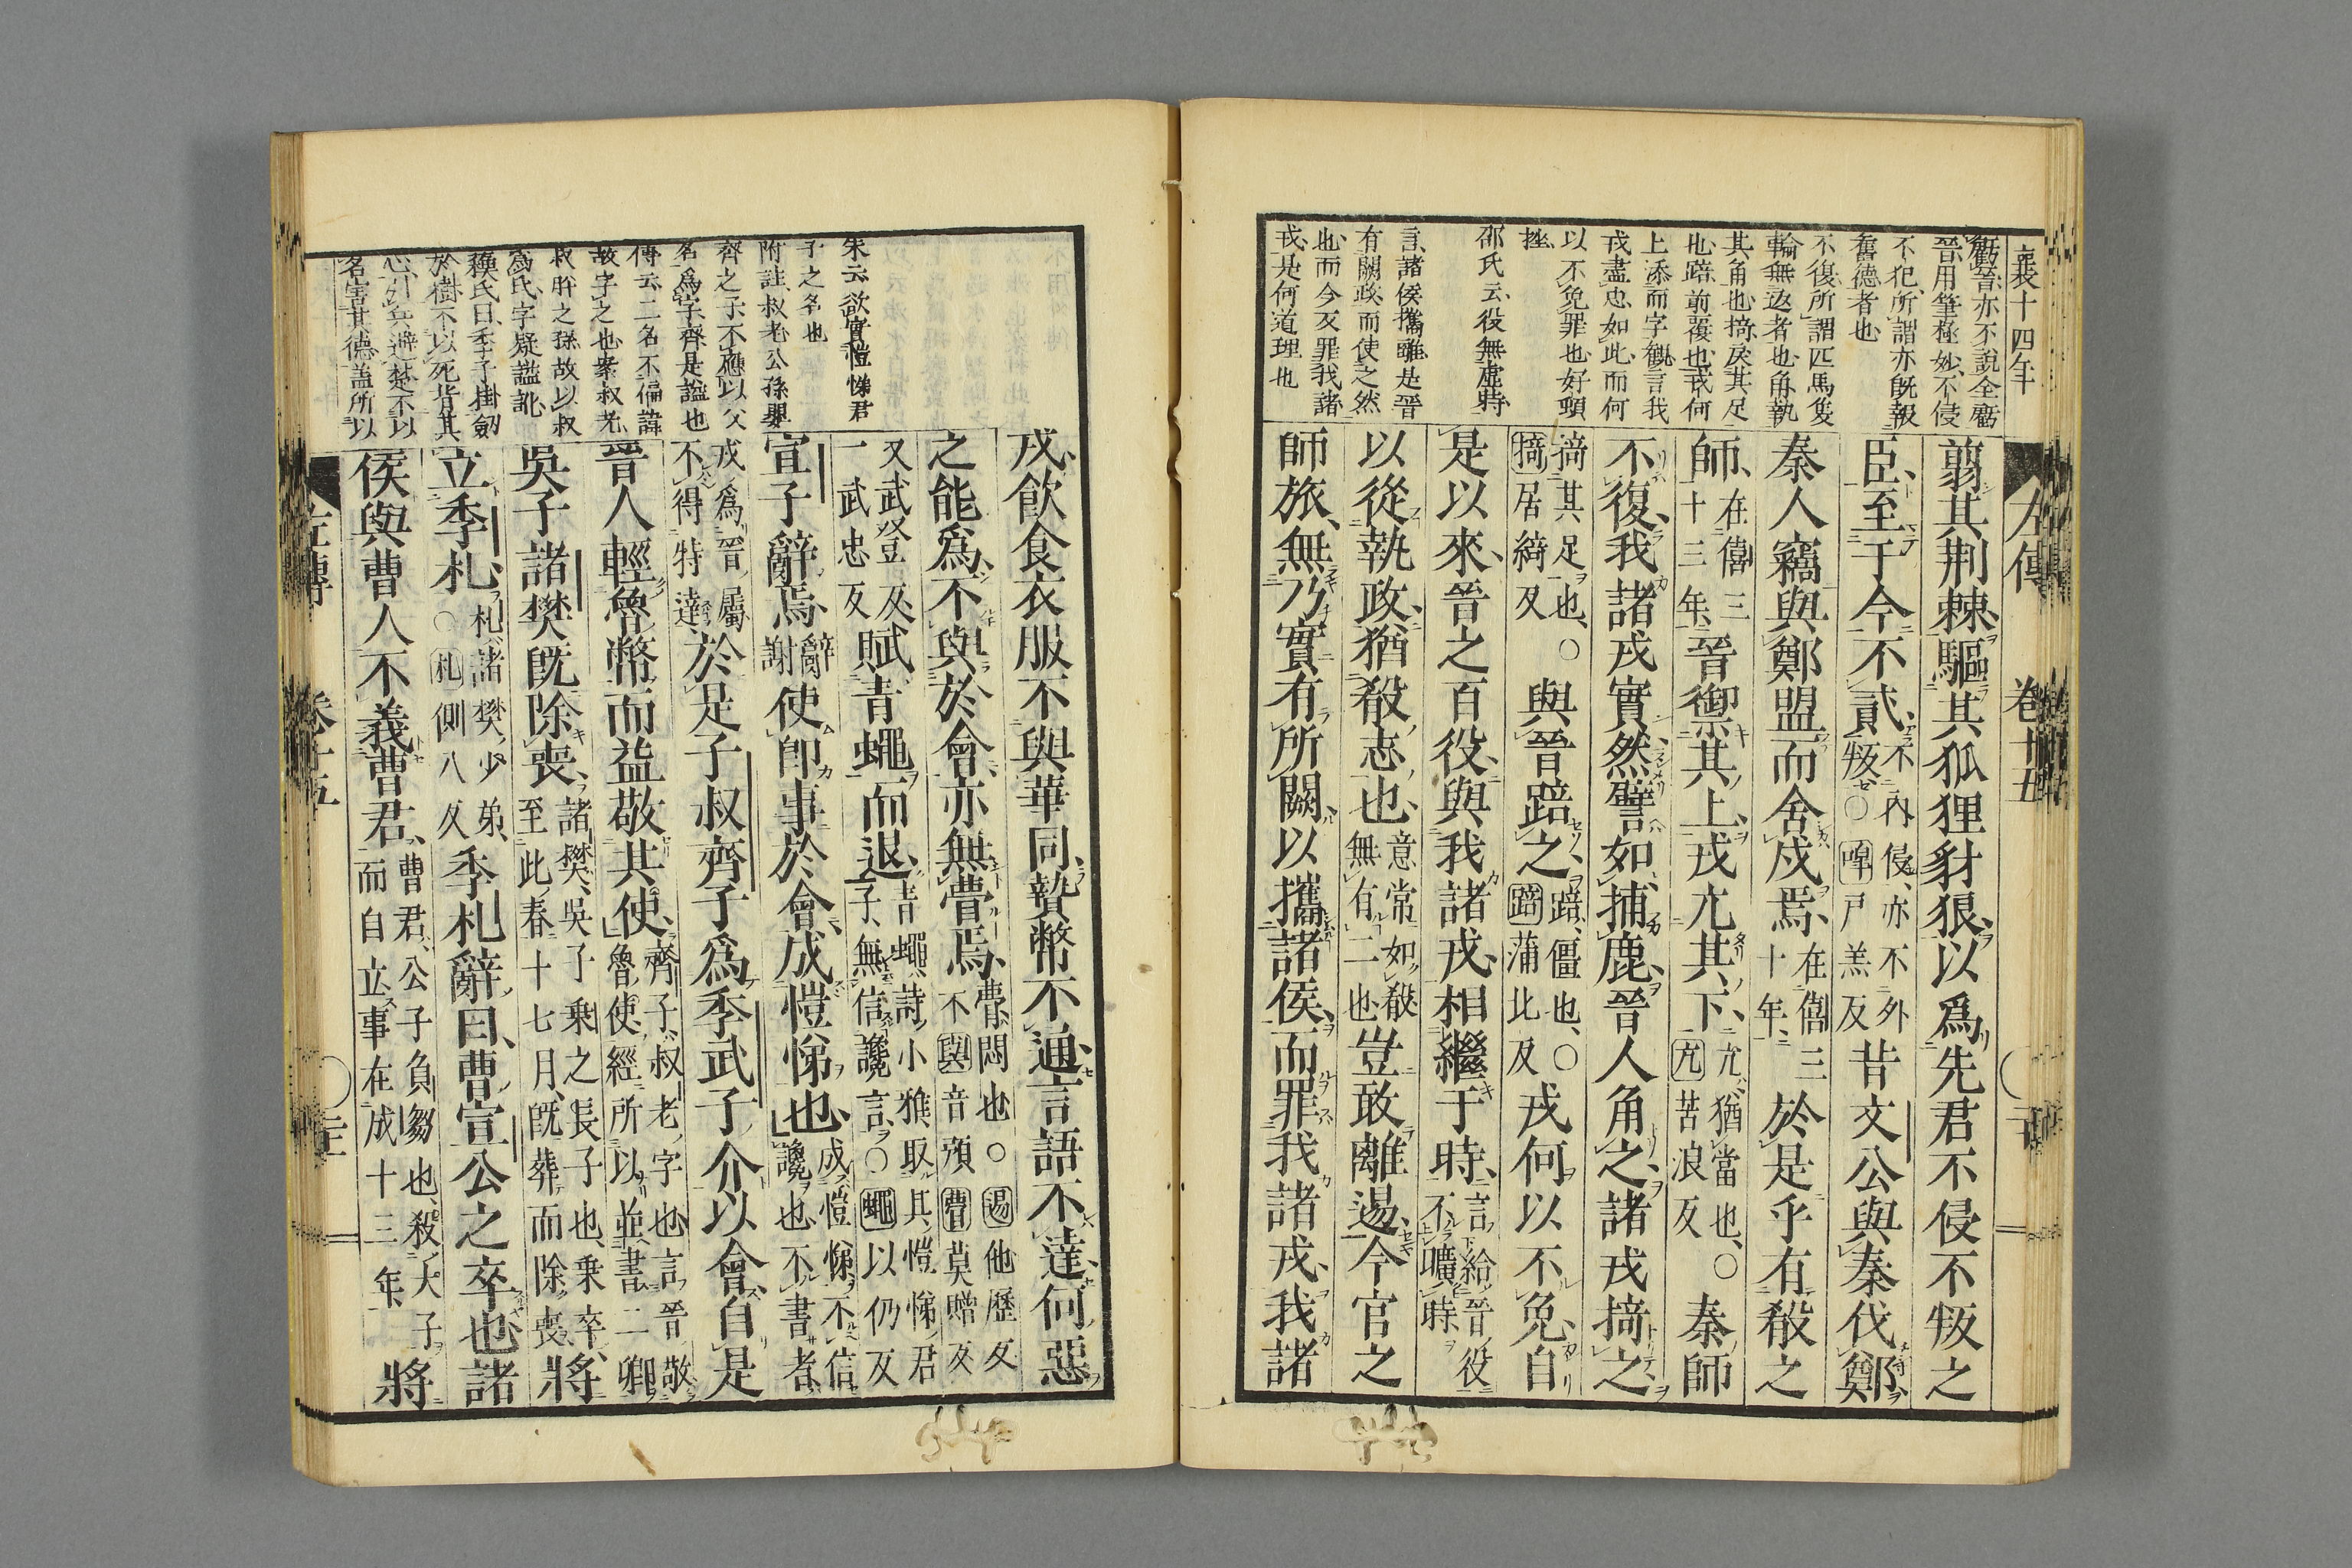 襄十四年
左傳　卷十五
虧晉亦不說全虧
晉用筆極妙不侵
不犯所謂亦既報
舊德者也
不復所謂匹馬隻
輪無返者也角執
其角也掎戾其足
也踣前覆也戎何
上添而字觀言我
戎盡忠如此而何
以不免罪也好頓
挫
邵氏云役無虛時
言諸侯攜離是晉
有闕政而使之然
也而今反罪我諸
戎是何道理也
翦其荆棘驅其狐狸豺狼以爲先君不侵不叛之
臣至于今不貳不內侵亦不外叛○㖞戸羔反昔文公與秦伐鄭
秦人竊與鄭盟而舍戍焉在僖三十年於是乎有殽之
師在僖三十三年晉禦其上戎亢其下亢猶當也○亢苦浪反秦師
不復我諸戎實然譬如捕鹿晉人角之諸戎掎之
掎其足也○掎居綺反與晉踣之踣僵也○踣蒲比反戎何以不免自
是以來晉之百役與我諸戎相繼于時言給晉役不曠時
以從執政猶殽志也意常如殽無有二也豈敢離逷今官之
師旅無乃實有所闕以攜諸侯而罪我諸戎我諸
戎飲食衣服不與華同贄幣不通言語不達何惡
之能爲不與於會亦無瞢焉瞢悶也○逷他歷反不與音預瞢莫贈反
又武登反一武忠反賦青蠅而退青蠅詩小雅取其愷悌君子無信讒言○蠅以仍反
宣子辭焉辭謝使卽事於會成愷悌也成愷悌不信讒也不書者
戎爲晉屬不得特達於是子叔齊子爲季武子介以會自是
晉人輕魯幣而益敬其使齊子叔老字也言晉敬魯使經所以並書二卿
吳子諸樊旣除喪諸樊吳子乘之長子也乘卒至此春十七月旣葬而除喪將
立季札札諸樊少弟○札側八反季札辭曰曹宣公之卒也諸
侯與曹人不義曹君曹君公子負芻也殺大子而自立事在成十三年將
朱云欲實愷悌君
子之名也
附註叔老公孫嬰
齊之子不應以父
名爲字齊是謚也
傳云二名不偏諱
故字之也案叔老
叔肸之孫故以叔
爲氏字疑謚訛
穆氏曰季子掛劔
於樹不以死背其
心引兵避楚不以
名害其德蓋所以
左傳　卷十五